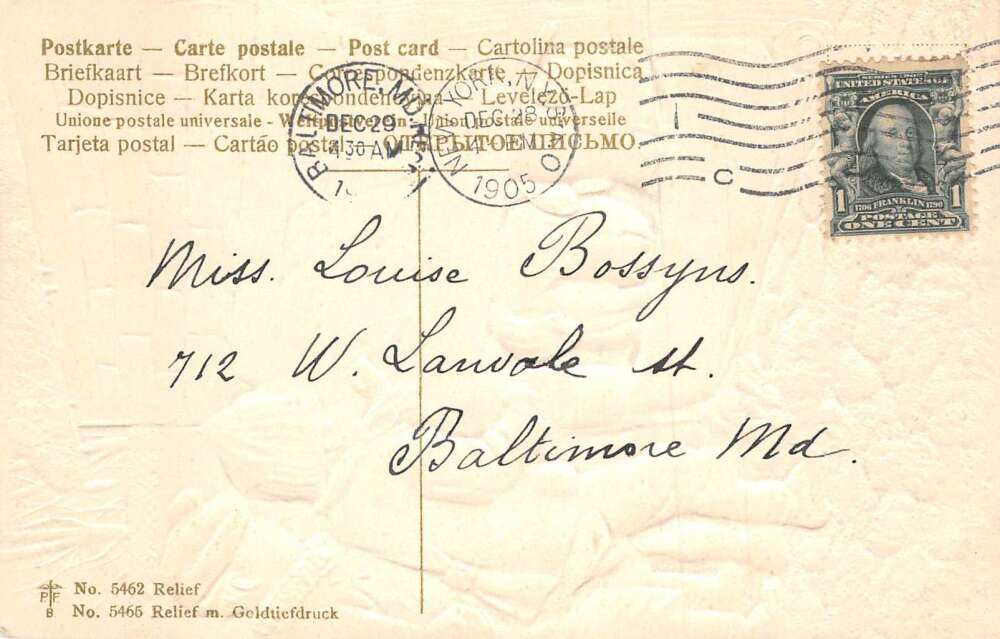 Postkarte — Carte postale — Post card — Cartolina postale
Briefkaart — Brefkort — Correspondenzkarte — Dopisnica
Dopisnice — Karta korespondencyjna — Levelező-Lap
Unione postale universale - Weltpostverein - Union postale universelle
Tarjeta postal — Cartão postal — ОТКРЫТОЕ ПИСЬМО.
BALTIMORE, MD.
DEC 29
4 30 A
NEW YORK, N.Y.
DEC 28
4 PM
1905
C
UNITED STATES OF
AMERICA
1706 FRANKLIN 1790
1 POSTAGE 1
ONE CENT
Miss. Louise Bossyns.
712 W. Lanvale St.
Baltimore Md.
PF
B
No. 5462 Relief
No. 5465 Relief m. Goldtiefdruck